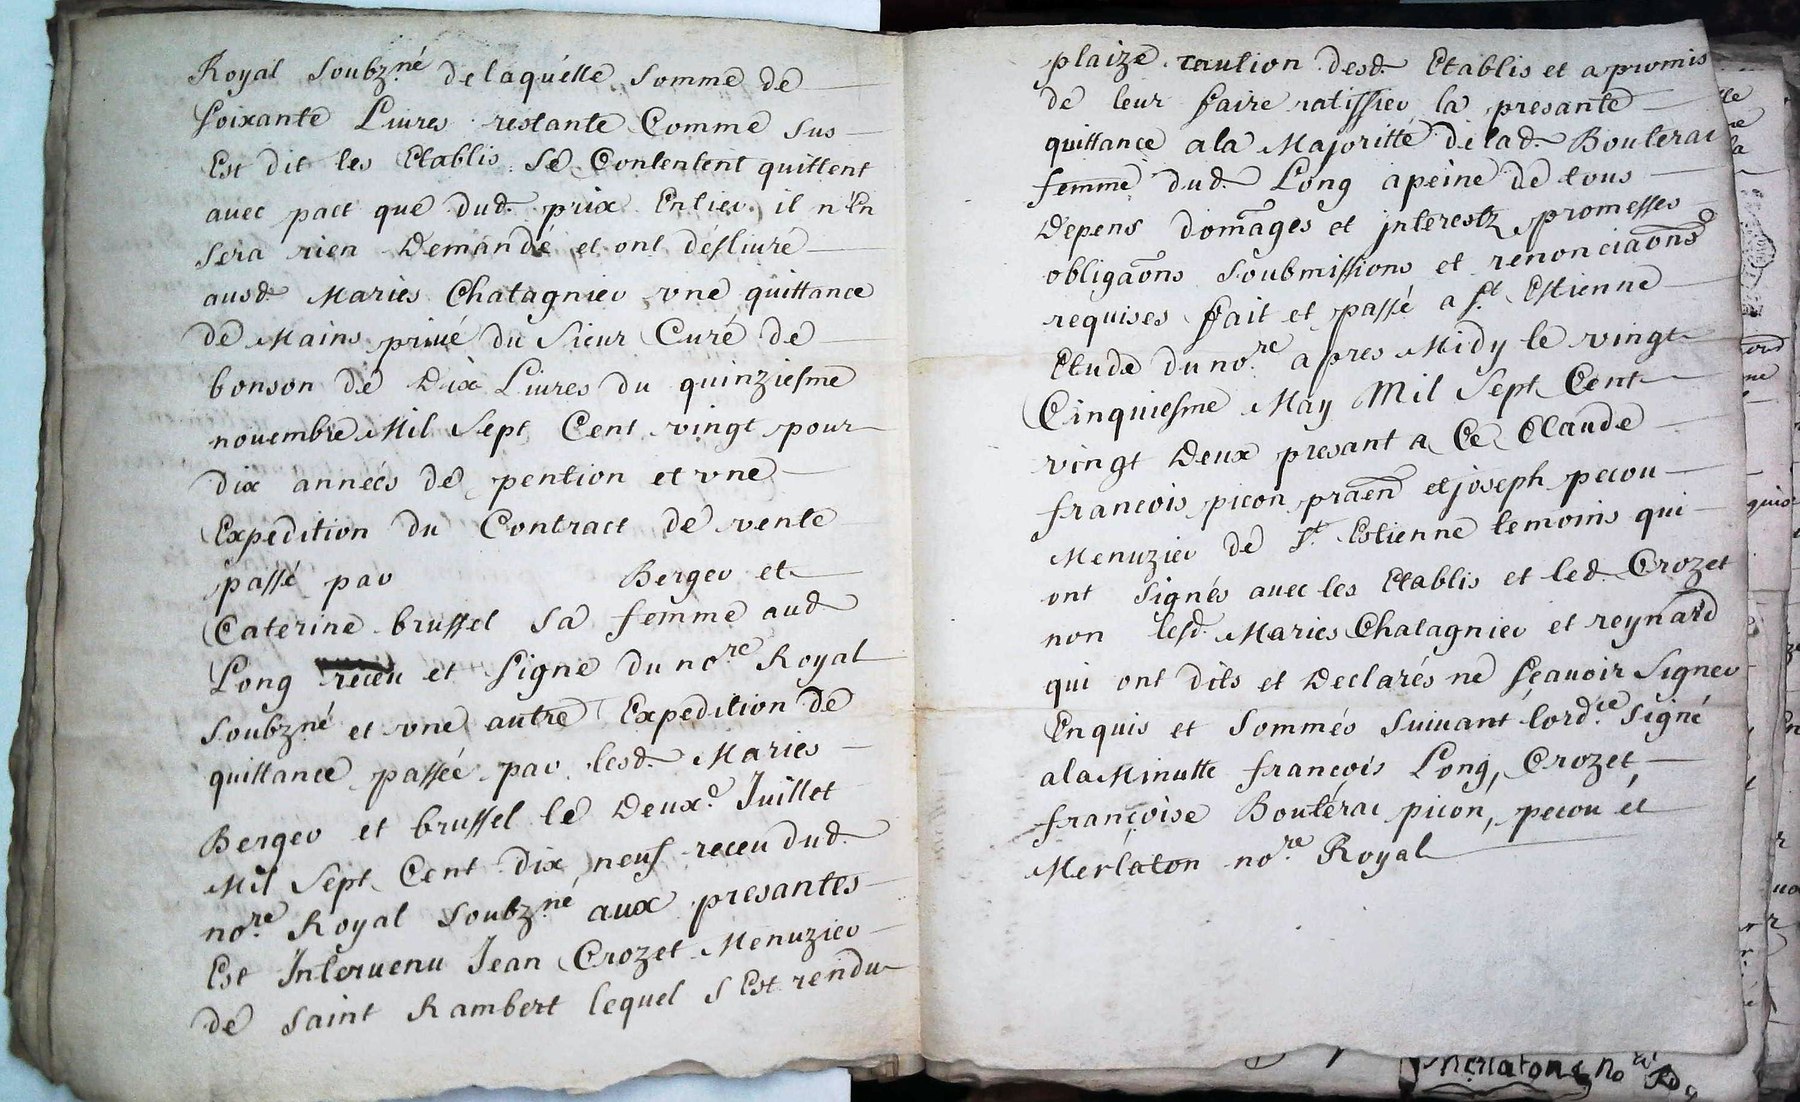 Royal Soubz.né de laquelle Somme de
Soixante Liures restante Comme Sus
Est dit les Etablis Se Contentent quittent
auec pact que dud. prix Entier il n'En
Sera rien Demandé et ont désliuré
ausd. Maries Chatagnier vne quittance
de Mains priué du Sieur Curé de
bonson de Dix Liures du quinziesme
nouembre Mil Sept Cent vingt pour
dix années de pention et vne
Expedition du Contract de vente
passé par Berger et
Caterine brussel Sa femme aud.
Long receu et Signe du no.re Royal
Soubz.né et vne autre Expedition de
quittance passée par lesd. Maries
Berger et brussel le Deux.e Juillet
Mil Sept Cent Dix neuf receu dud.
no.re Royal Soubz.né aux presantes
Est Interuenu Jean Crozet Menuzier
de Saint Rambert lequel S'Est rendu
plaize caution desd. Etablis et a promis
de leur faire ratiffier la presante
quittance a la Majoritté de lad. Bouterac
femme dud. Long a peine de tous
Depens domages et jnterestz promesses
obligaõns Soubmissions et renonciaõns
requises fait et passé a S.t Estienne
Etude du no.re apres Midy le vingt
Cinquiesme May Mil Sept Cent
vingt Deux presant a Ce Claude
francois picon praen et joseph pecou
Menuzier de S.t Estienne temoins qui
ont Signés auec les Etablis et led. Crozet
non lesd. Maries Chatagnier et reynard
qui ont dits et Declarés ne sçauoir Signer
Enquis et Sommés Suiuant lord.ce Signé
a la Minutte françois Long, Crozet,
françoise Boutérac picon, pecou et
Merlaton no.re Royal
Merlaton no.re